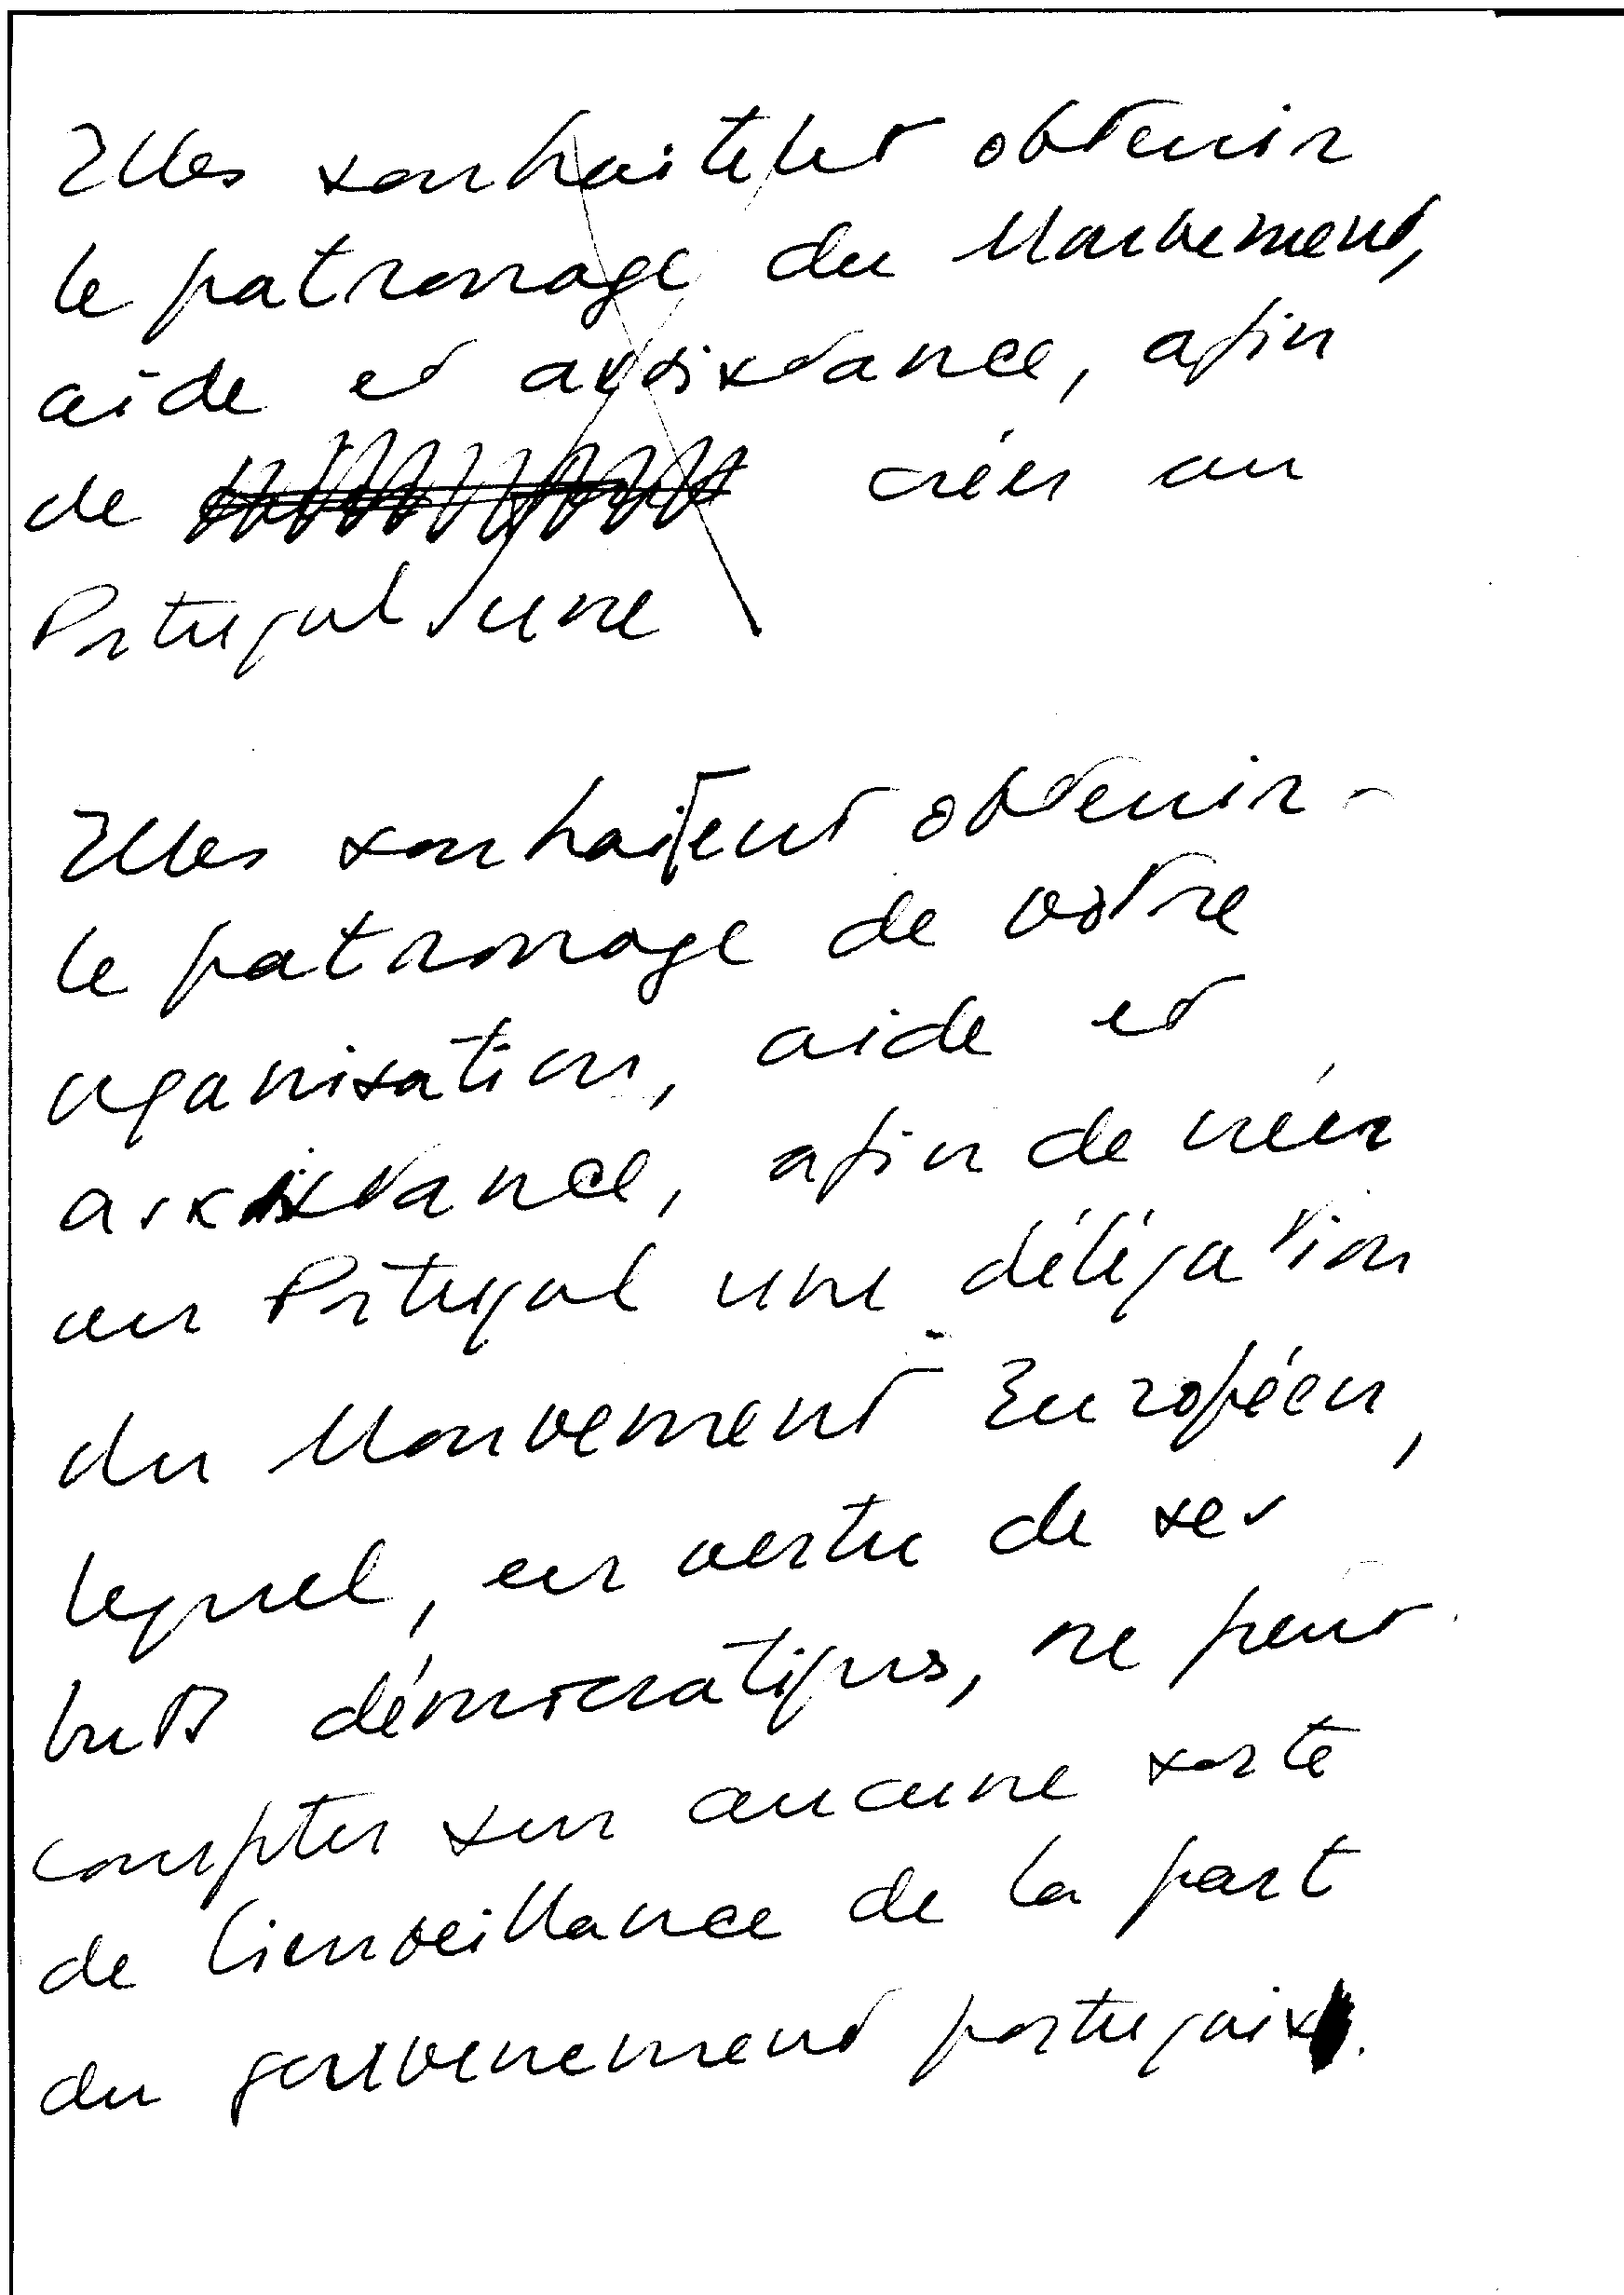 Elles souhaitent obtenir
le patronage du Mouvement,
aide et assistance, afin
de créer au
Portugal une
Elles souhaitent obtenir -
le patronage de votre
organisation, aide et
assistance, afin de créer
au Portugal une délégation
du Mouvement Européen,
lequel, en vertu de ses
buts démocratiques, ne peut
compter sur aucune sorte
de bienveillance de la part
du gouvernement portugais.